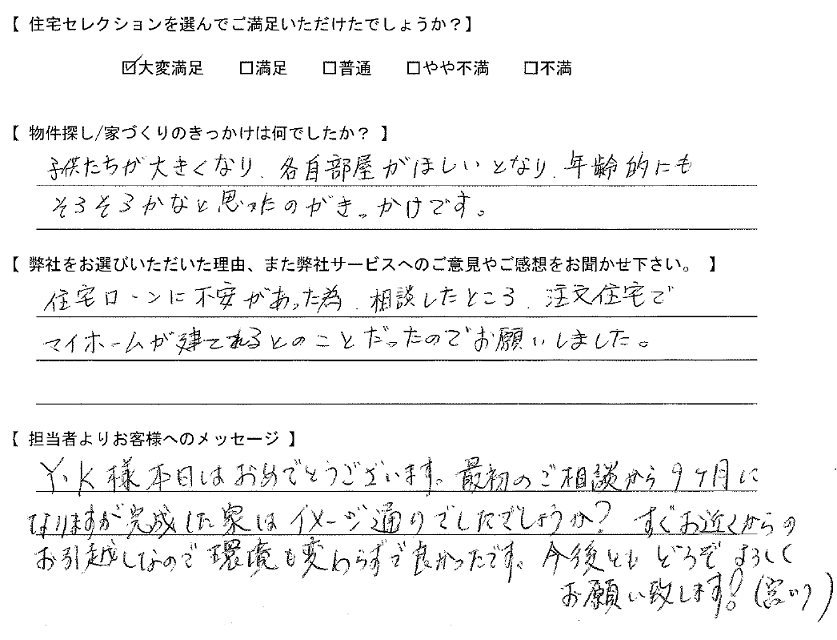 【 住宅セレクションを選んでご満足いただけたでしょうか？】
☑大変満足 □満足 □普通 □やや不満 □不満
【 物件探し/家づくりのきっかけは何でしたか？ 】
子供たちが大きくなり、各自部屋がほしいとなり、年齢的にも
そろそろかなと思ったのがきっかけです。
【 弊社をお選びいただいた理由、また弊社サービスへのご意見やご感想をお聞かせ下さい。 】
住宅ローンに不安があった為、相談したところ、注文住宅で
マイホームが建てれるとのことだったのでお願いしました。
【 担当者よりお客様へのメッセージ 】
Y・K様本日はおめでとうございます。最初のご相談から9ヶ月に
なりますが完成した家はイメージ通りでしたでしょうか？ すぐお近くからの
お引越しなので環境も変わらずで良かったです。今後ともどうぞよろしく
お願い致します！(宮川)